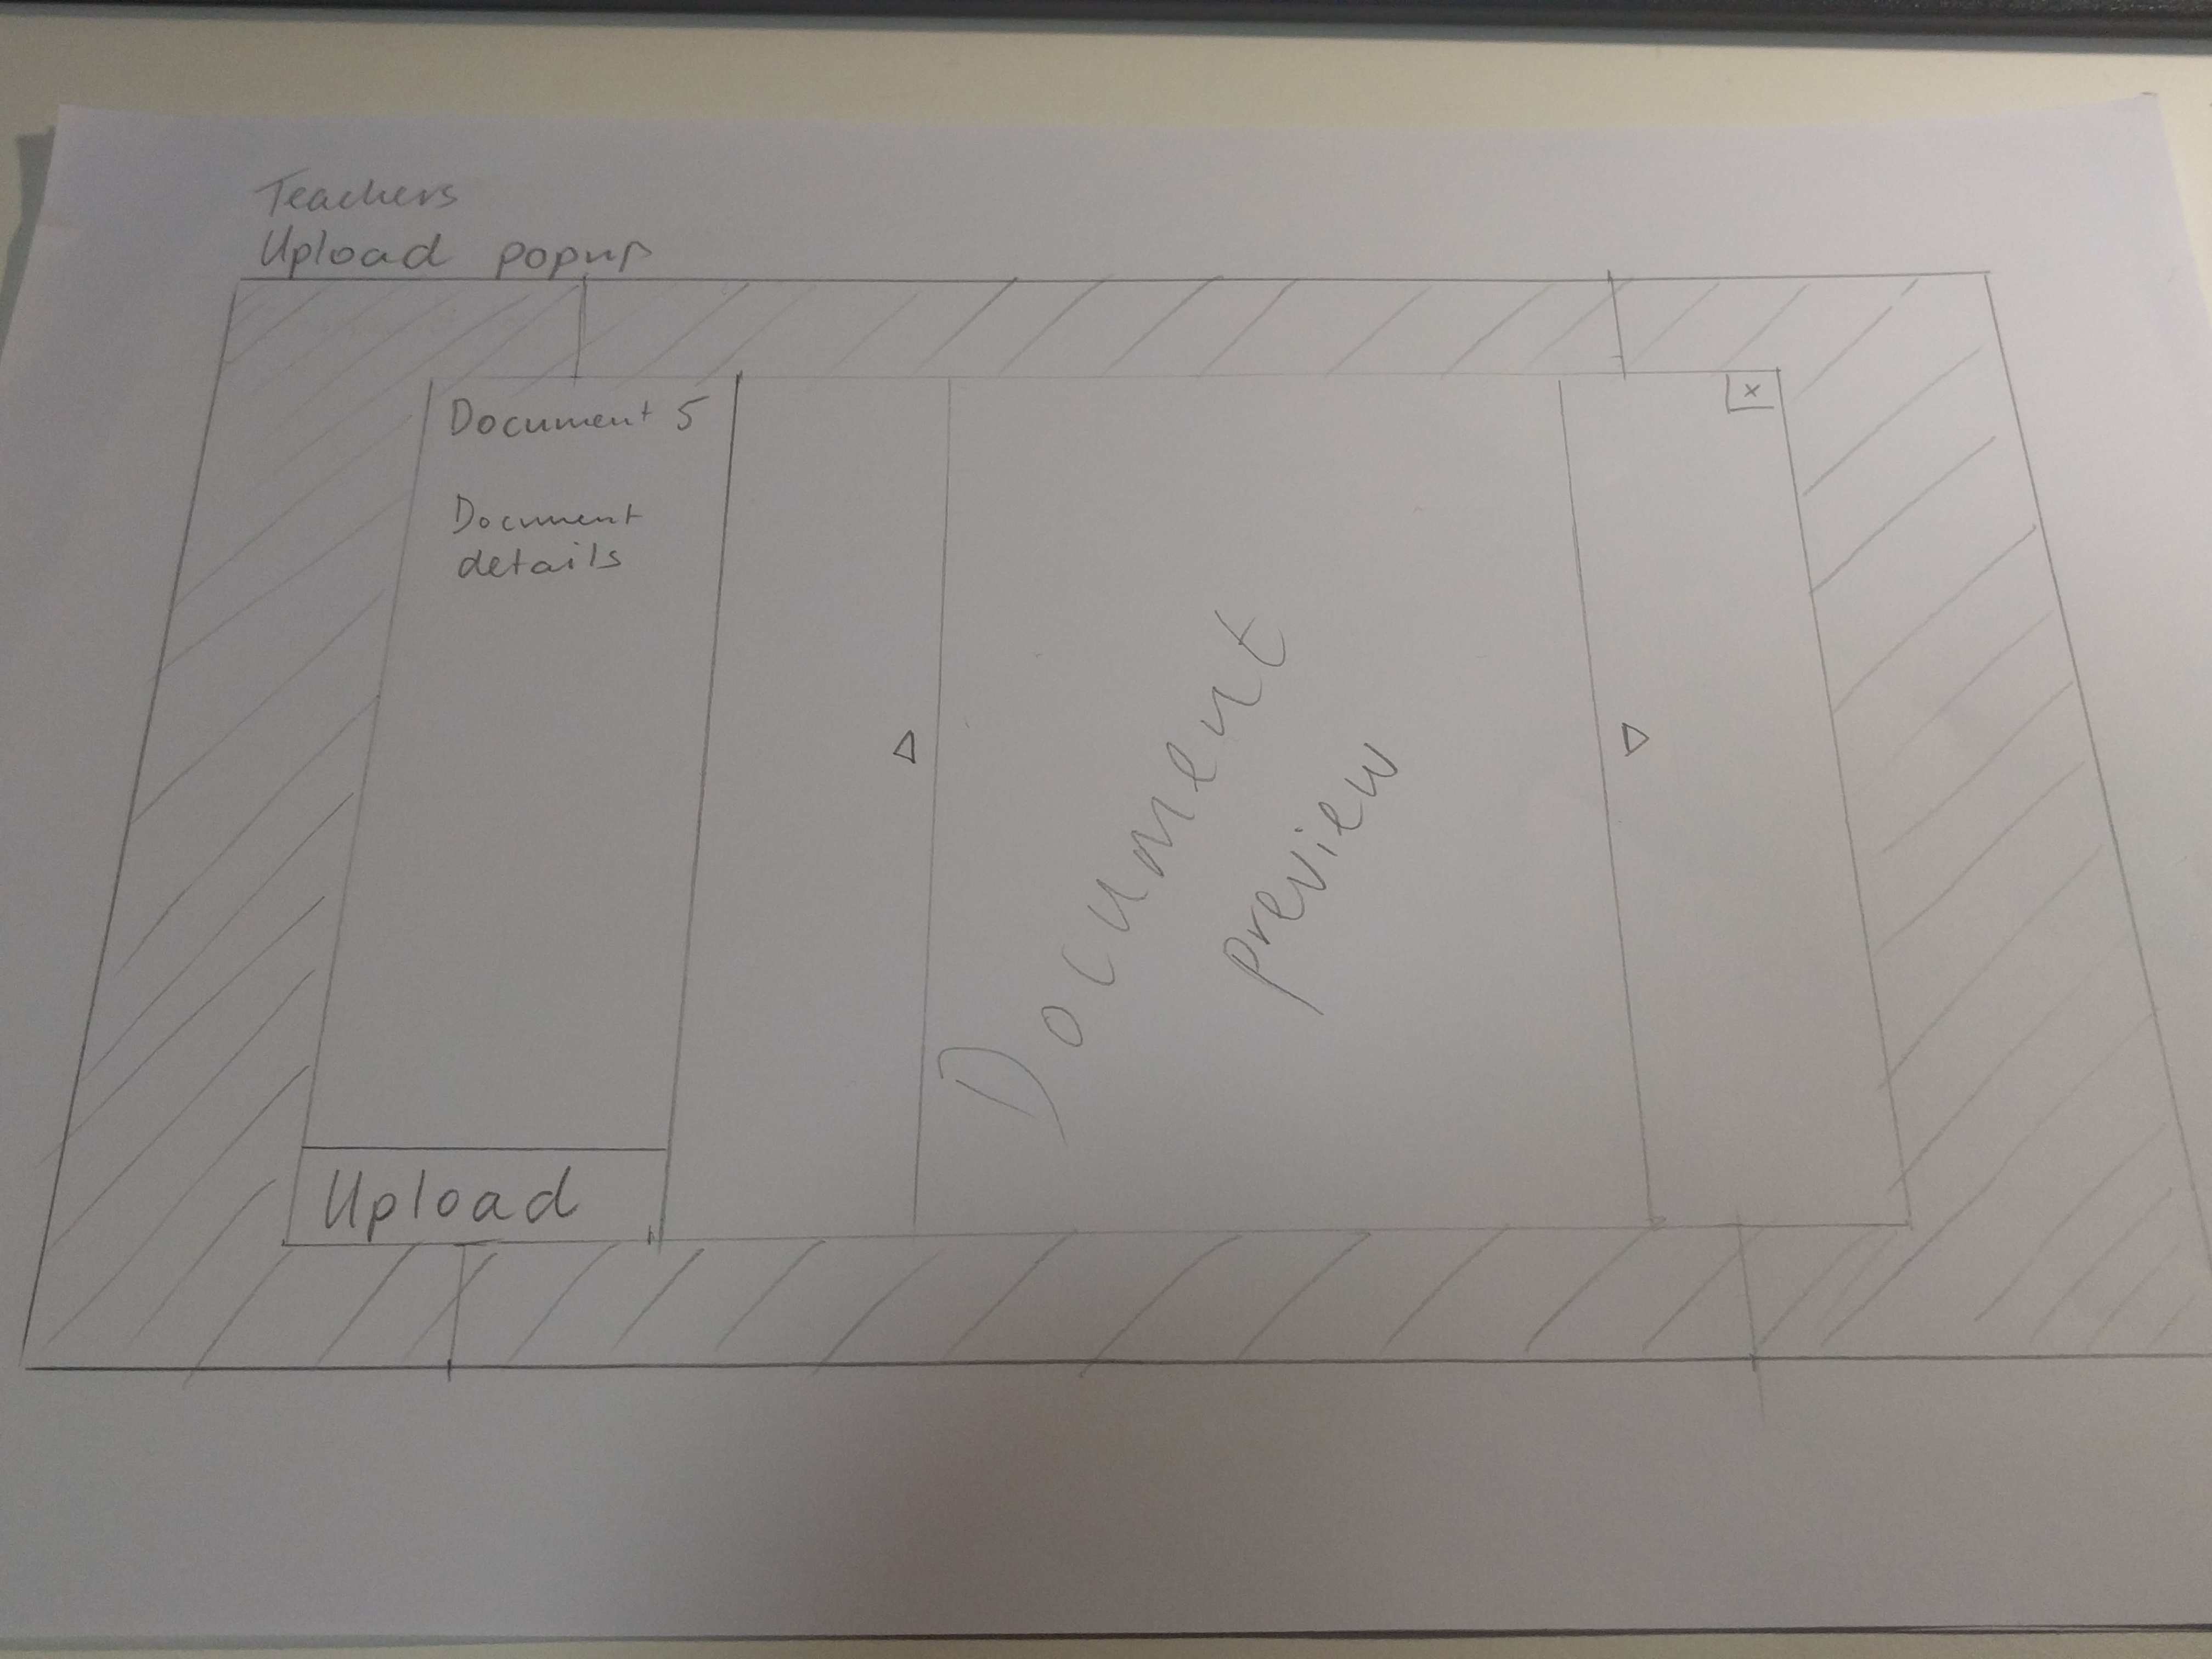 Teachers
Upload popup
Document 5
x
Document
details
Document
preview
Upload